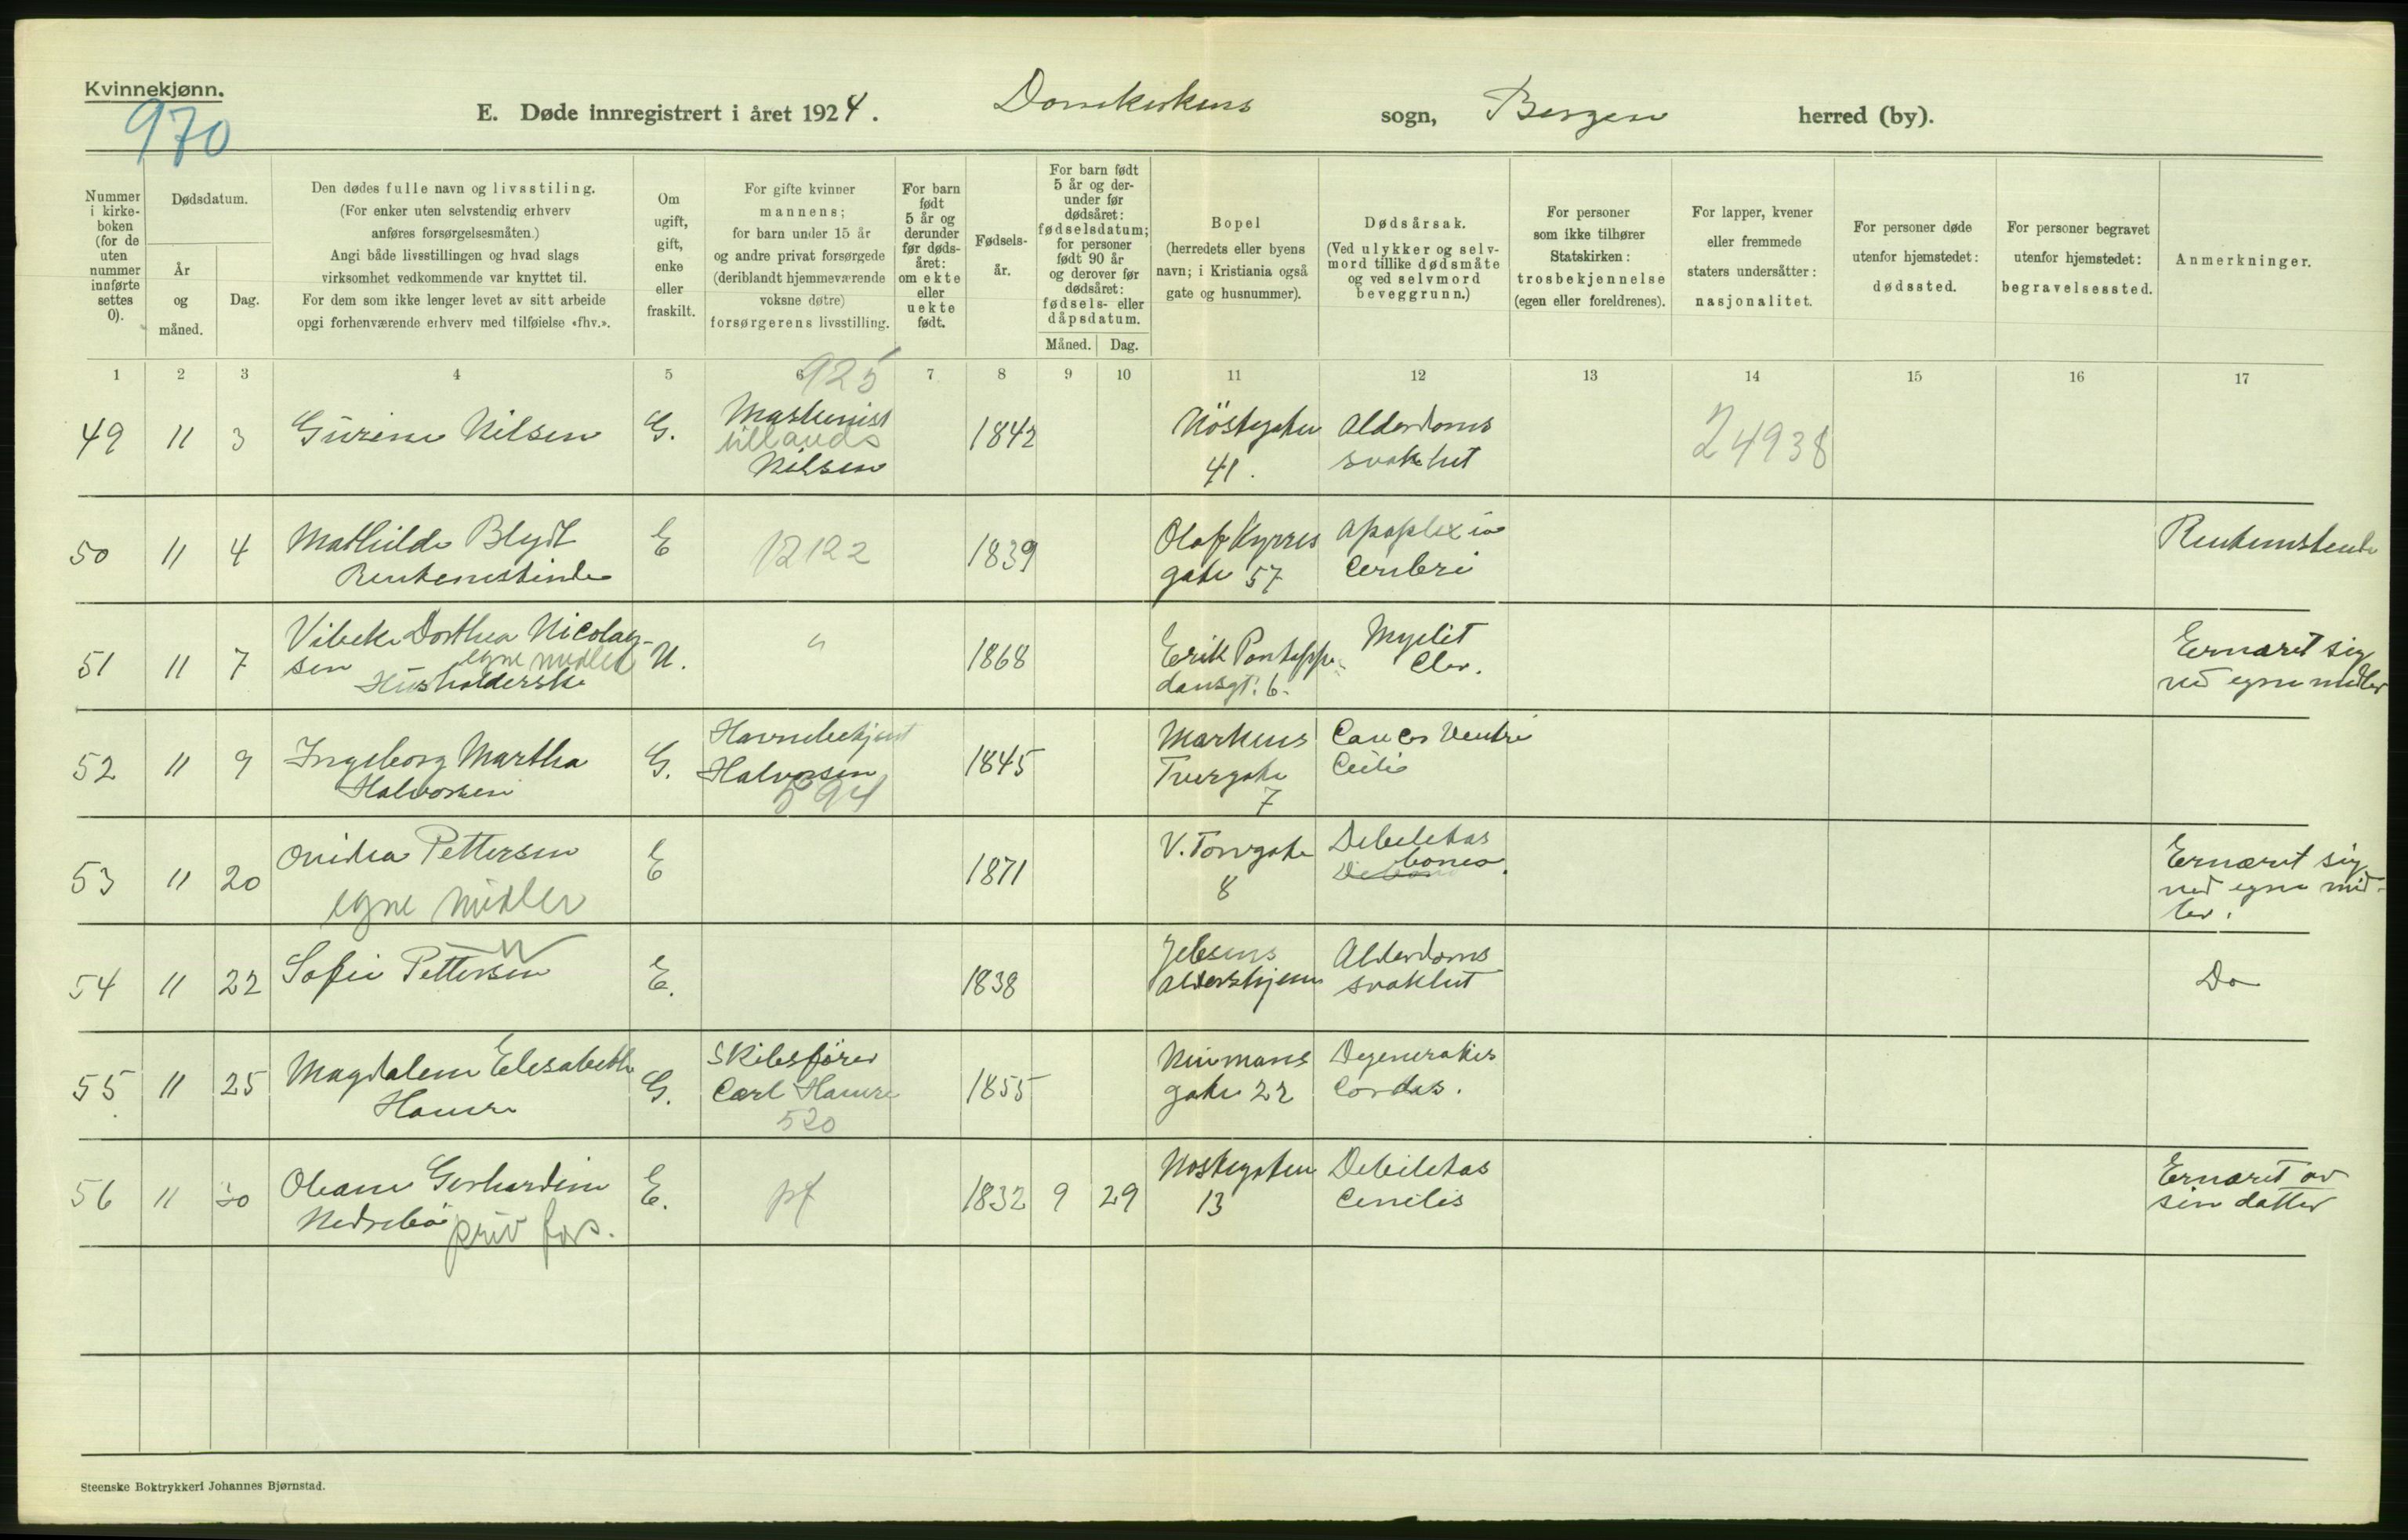 Kvinnekjønn.
970
E. Døde innregistrert i året 1924. Domkirkens sogn, Bergen herred (by).
Nummer i kirke-boken (for de uten nummer innførte settes 0).
Dødsdatum.
År og måned.
Dag.
Den dødes fulle navn og livsstiling.
(For enker uten selvstendig erhverv
anføres forsørgelsesmåten.)
Angi både livsstillingen og hvad slags
virksomhet vedkommende var knyttet til.
For dem som ikke lenger levet av sitt arbeide
opgi forhenværende erhverv med tilføielse «fhv.».
Om
ugift,
gift,
enke
eller
fraskilt.
For gifte kvinner
mannens;
for barn under 15 år
og andre privat forsørgede
(deriblandt hjemmeværende
voksne døtre)
forsørgerens livsstilling.
For barn
født
5 år og
derunder
før døds-
året:
om ekte
eller
uekte
født.
Fødsels-
år.
For barn født
5 år og der-
under før
dødsåret:
fødselsdatum;
for personer
født 90 år
og derover før
dødsåret:
fødsels- eller
dåpsdatum.
Måned. Dag.
Bopel
(herredets eller byens
navn; i Kristiania også
gate og husnummer).
Dødsårsak.
(Ved ulykker og selv-
mord tillike dødsmåte
og ved selvmord
beveggrunn.)
For personer
som ikke tilhører
Statskirken:
trosbekjennelse
(egen eller foreldrenes).
For lapper, kvener
eller fremmede
staters undersåtter:
nasjonalitet.
For personer døde
utenfor hjemstedet:
dødssted.
For personer begravet
utenfor hjemstedet:
begravelsessted.
Anmerkninger.
1 2 3 4 5 6 7 8 9 10 11 12 13 14 15 16 17
925
49 11 3 Gurine Nilsen G. Maskinist
Nilsen 1842 Nöstegaten
41. Alderdoms
svakhet 24938
50 11 4 Mathilde Blydt
Rentenistinde E 12122 1839 Olaf Kyrres
gate 57 Apoplexia
Cerebri
51 11 7 Vibeke Dorthea Nicolay-
sen egne midler
Husholderske U. " 1868 Erik Pontoppi-
dansgt. 6. Myelit
Ernæret sig
ved egne midler
52 11 9 Ingeborg Martha
Halvorsen G. Havnebetjent
Halvorsen
594 1845 Markus
Tvergate
7 Cancer Ventri
53 11 20 Pettersen
egne midler E 1871 V. Torvgate
8 Debilitas
Ernæret sig
ved egne mid-
ler.
54 11 22 Sofie Pettersen E. 1838 Jebsens
Aldershjem Alderdoms
svakhet Do
55 11 25 Magdalene Elisabeth
Hamre G. Skibsfører
Carl Hamre
520 1855 Neumans
gate 22 Degeneratio
Cordis.
56 11 30 Oleane Gerhardine
Nedrebö priv fors. E. pf 1832 9 29 Nöstegaten
13 Debilitas
Cenilis Ernæret av
sin datter
Steenske Boktrykkeri Johannes Bjørnstad.